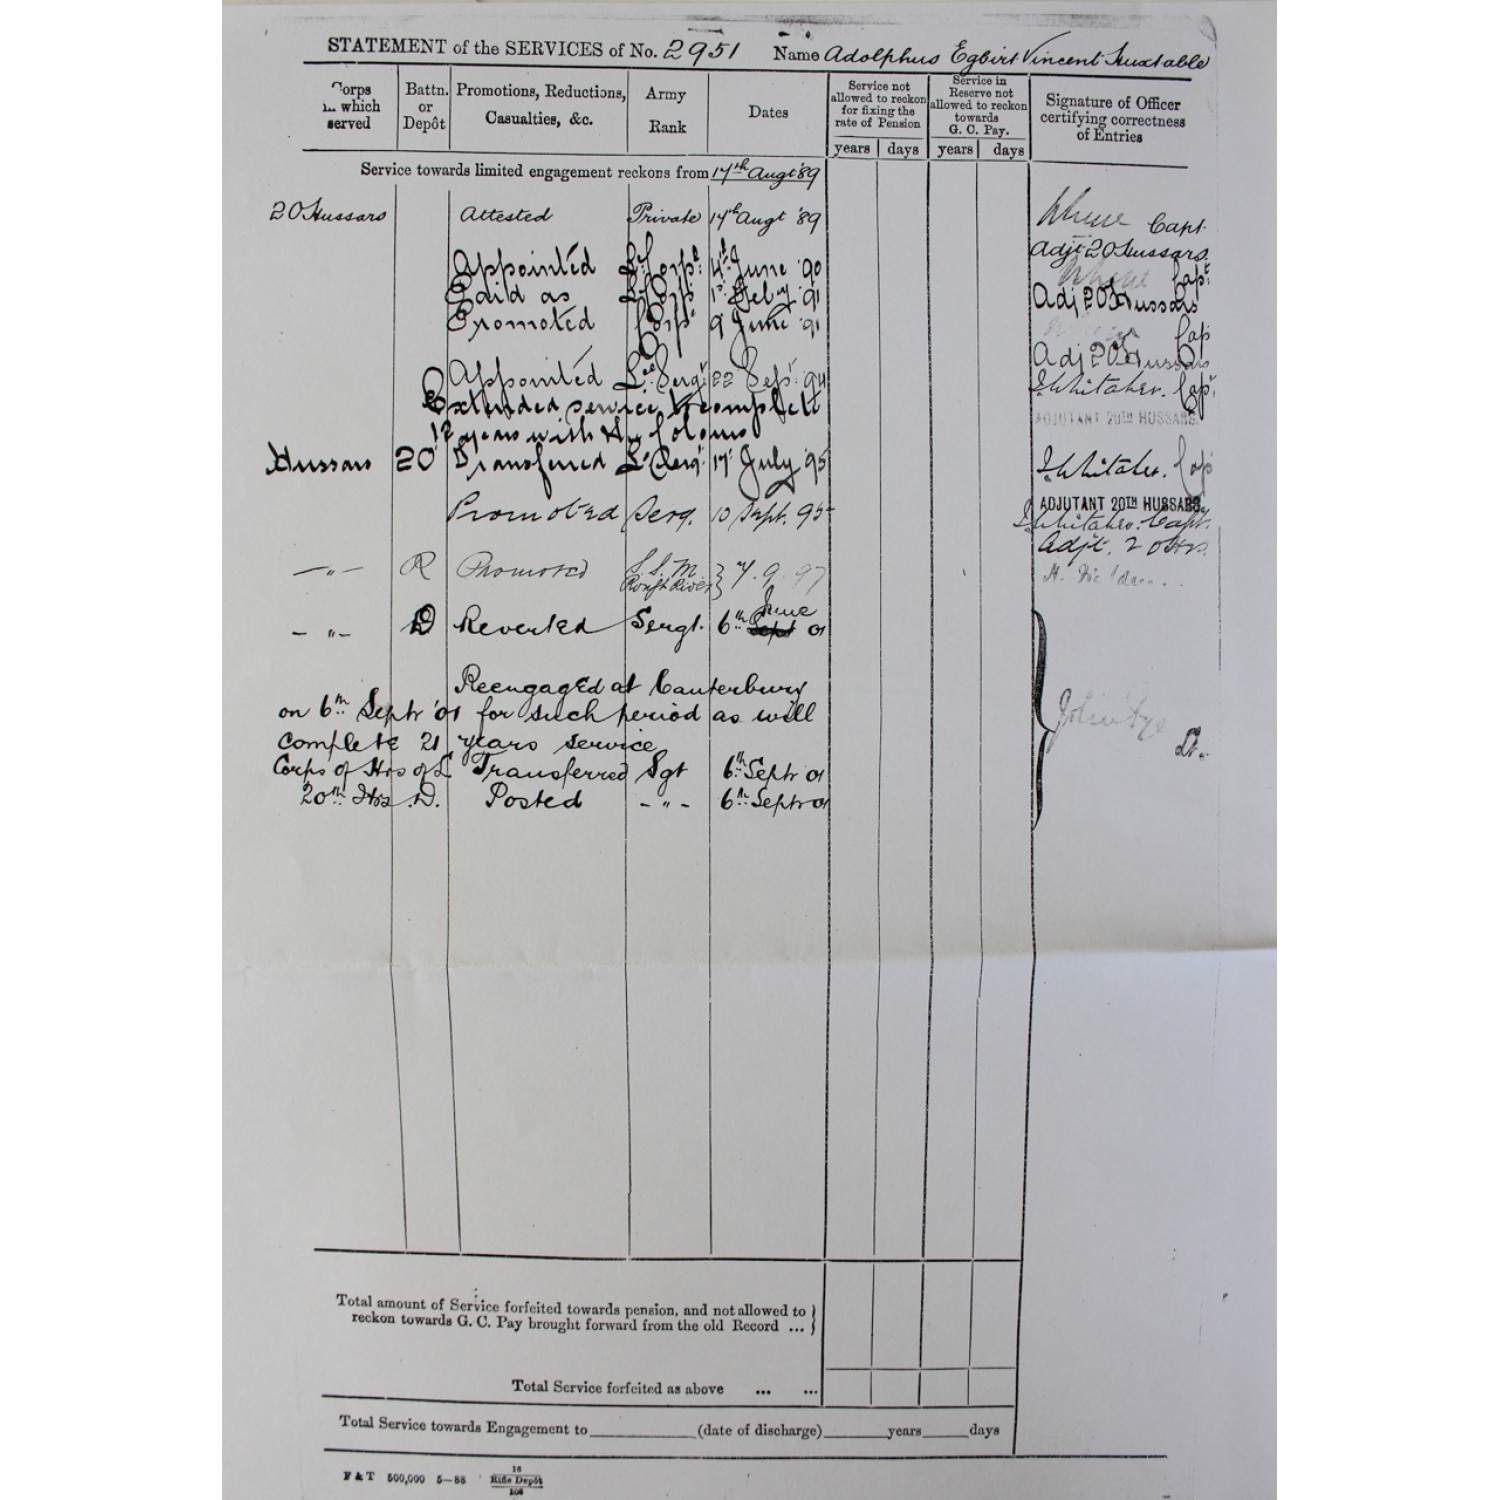 STATEMENT of the SERVICES of No. 2951 Name Adolphus Egbert Vincent Huxtable
Corps in which served
Battn. or Depôt
Promotions, Reductions, Casualties, &c.
Army Rank
Dates
Service not allowed to reckon for fixing the rate of Pension
Service in Reserve not allowed to reckon towards G. C. Pay.
Signature of Officer certifying correctness of Entries
years days years days
Service towards limited engagement reckons from 17th Augt '89
20 Hussars Attested Private 17th Augt '89 Capt.
Adjt 20 Hussars.
Appointed L. Corpl. 4th June '90 Capt
Paid as L. Corpl. 1st Feby '91 Adj 20 Hussars
Promoted Corpl. 9 June '91 Cap
Adj 20 Hussars
Appointed Lce. Sergt 22 Sept. '94 Whitaker. Capt.
Extended service to complete ADJUTANT 20TH HUSSARS.
12 years with the Colours
Hussars 20 Transferred L. Sergt. 17 July '95 Whitaker. Cap
ADJUTANT 20TH HUSSARS.
Promoted Serg. 10 Sept. 95 Whitaker. Capt.
Adjt. 20 Hrs.
—"— R Promoted S. S. M. Rough Rider } 7.9.97
—"— D Reverted Sergt. 6th June 01
Reengaged at Canterbury
on 6th Septr '01 for such period as will
complete 21 years service
Corps of Hrs of L Transferred Sgt 6th Septr 01
20th Hrs D. Posted —"— 6th Septr 01
John Lt.
Total amount of Service forfeited towards pension, and not allowed to }
reckon towards G. C. Pay brought forward from the old Record ... }
Total Service forfeited as above ... ...
Total Service towards Engagement to (date of discharge) years days
F & T 500,000 5—88 16 Rifle Depôt 106